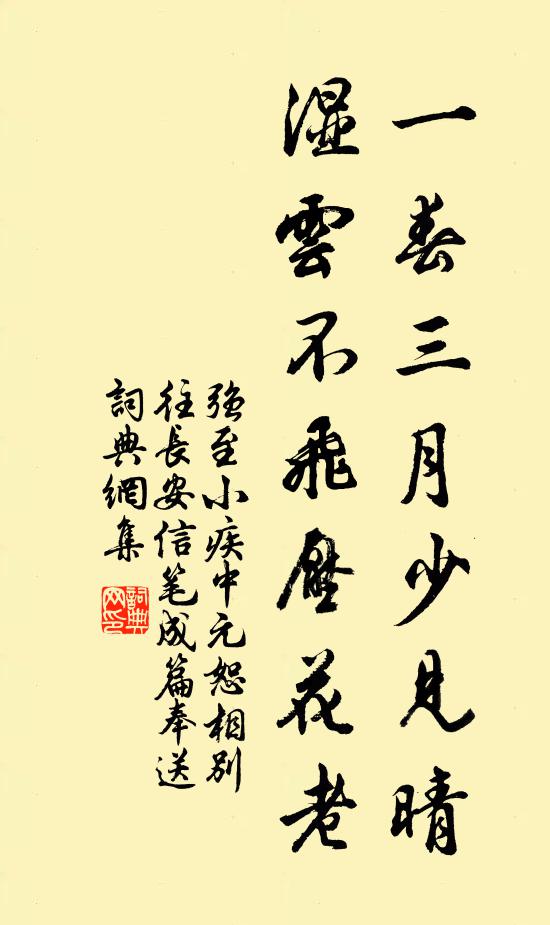 一春三月少見晴
濕雲不飛壓花老
強至小疾中元恕相別
往長安信筆成篇奉送
詞典網集
詞典
网印